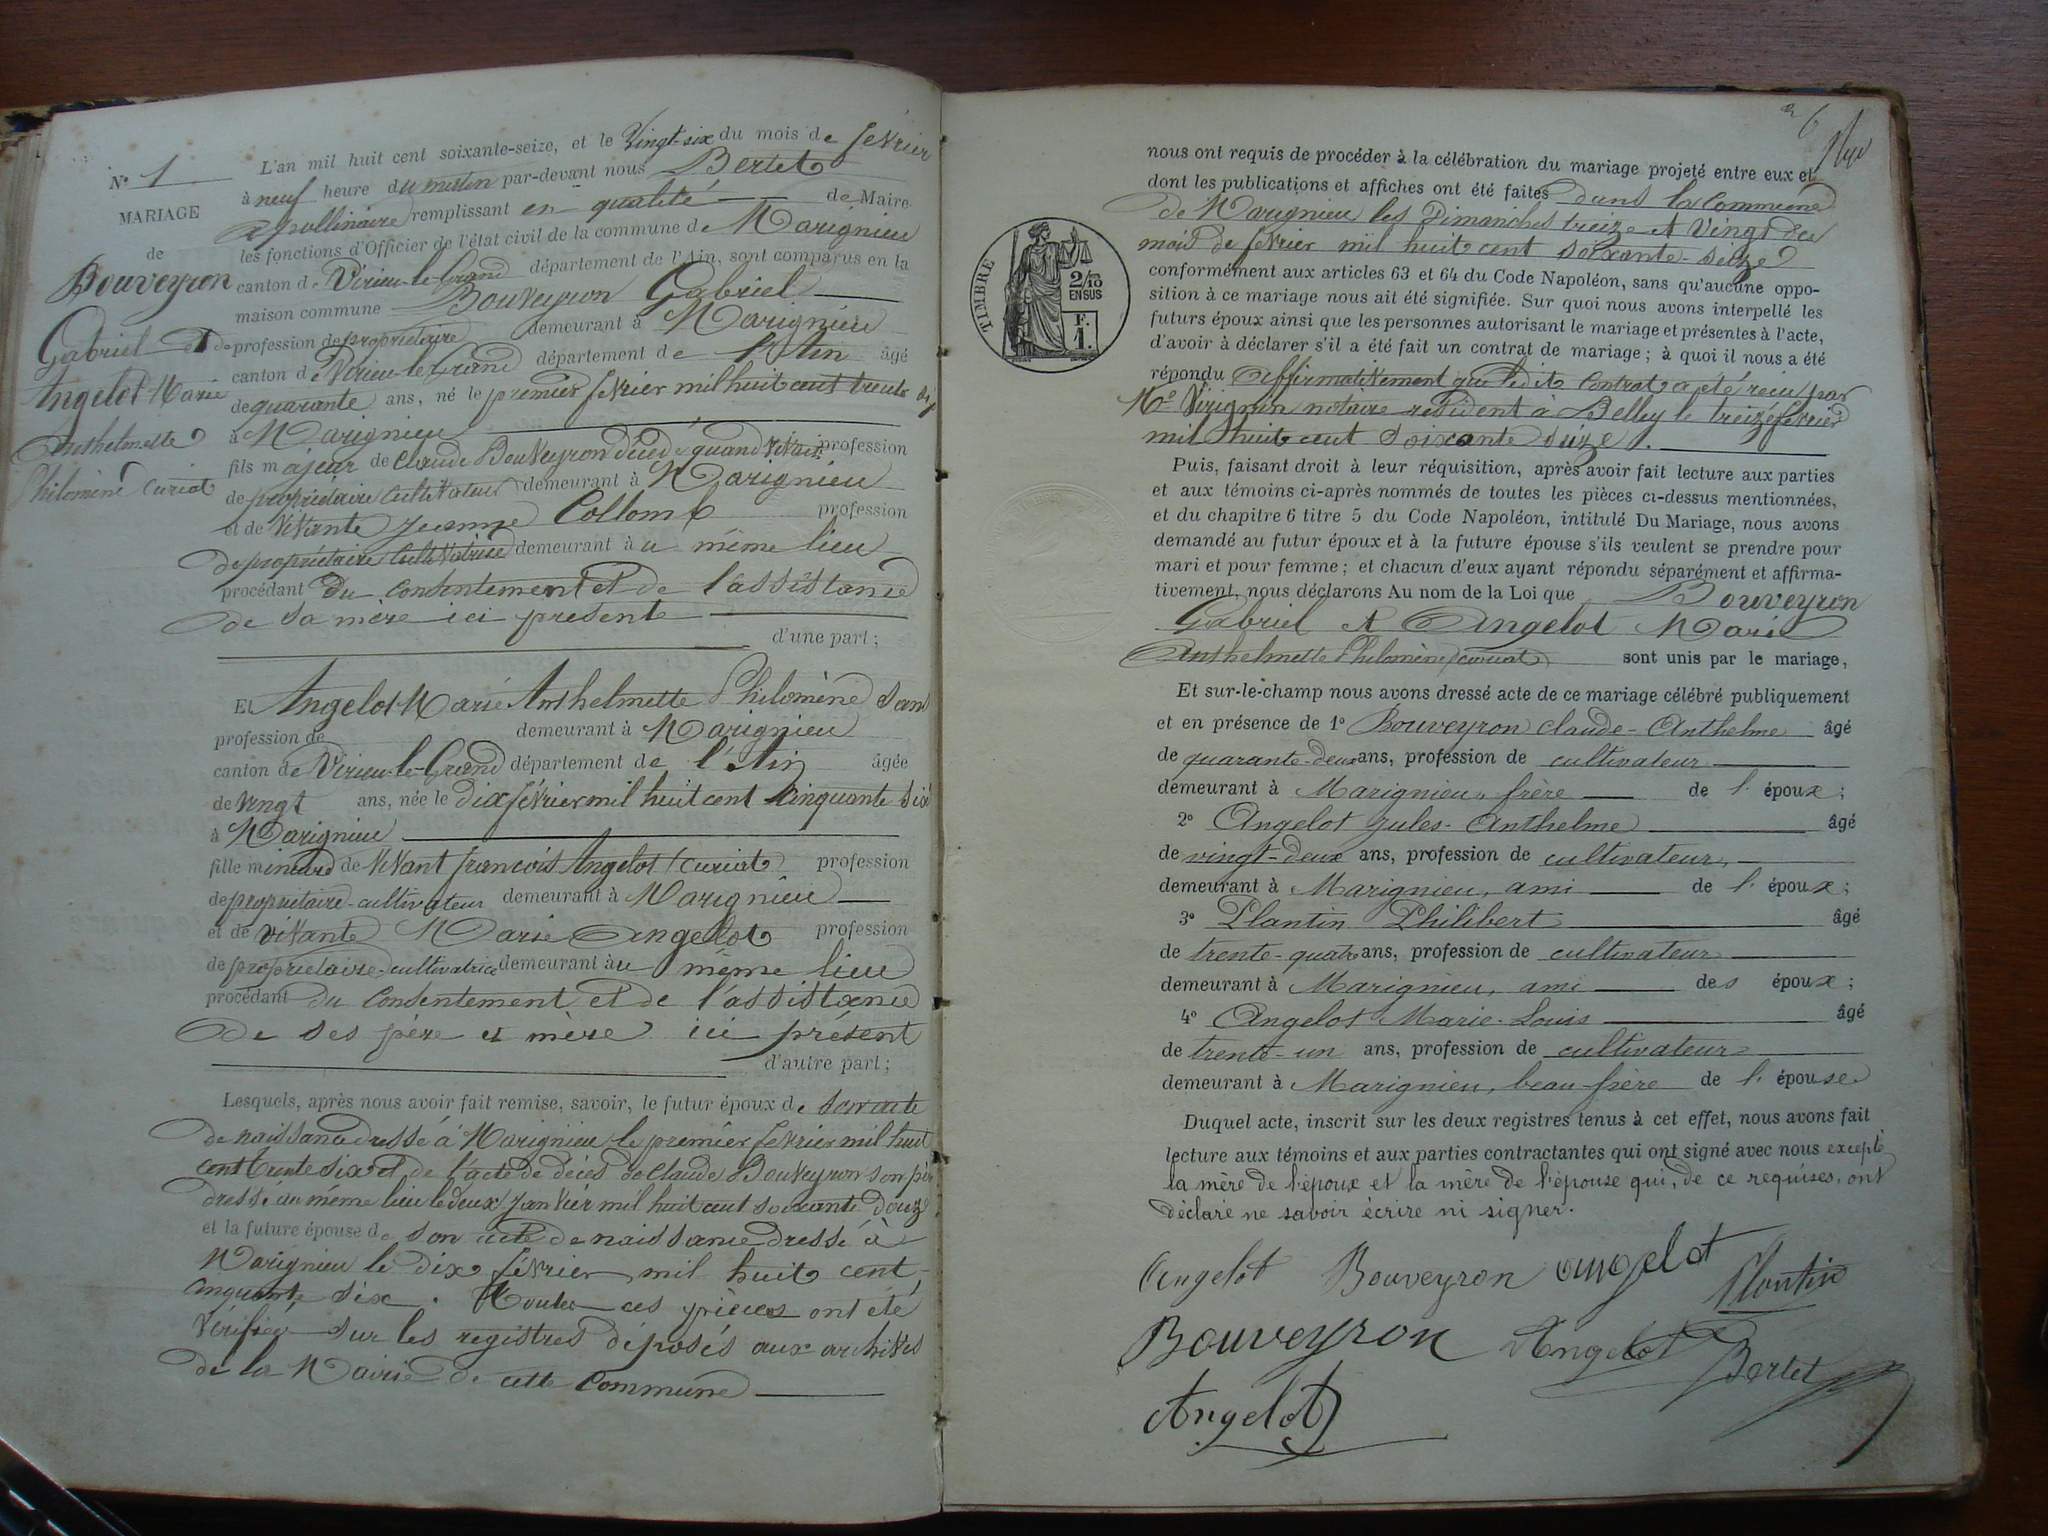 L'an mil huit cent soixante-seize, et le Vingt-six du mois de février
N° 1
à neuf heure du matin par-devant nous Bertet
MARIAGE
apollinaire remplissant en qualité de Maire
de
les fonctions d'Officier de l'état civil de la commune de Marignieu
Bouveyron
canton de Virieu-le-Grand département de l'Ain, sont comparus en la
maison commune Bouveyron Gabriel
Gabriel et
profession de propriétaire demeurant à Marignieu
canton de Virieu-le-Grand département de l'Ain âgé
Angelot Marie
de quarante ans, né le premier février mil huit cent trente six
Anthelmette
à Marignieu
Philomène Curiat
fils majeur de Claude Bouveyron décédé quand vivait profession
de propriétaire cultivateur demeurant à Marignieu
et de vivante Jeanne Collomb profession
de propriétaire cultivatrice demeurant à u même lieu
procédant du consentement et de l'assistance
de sa mère ici présente
d'une part;
Et Angelot Marie Anthelmette Philomène sans
profession de demeurant à Marignieu
canton de Virieu-le-Grand département de l'Ain âgée
de vingt ans, née le dix février mil huit cent cinquante six
à Marignieu
fille mineure de vivant françois Angelot Curiat profession
de propriétaire-cultivateur demeurant à Marignieu
et de vivante Marie Angelot profession
de propriétaire-cultivatrice demeurant à u même lieu
procédant du consentement et de l'assistance
de ses père et mère ici présent
d'autre part;
Lesquels, après nous avoir fait remise, savoir, le futur époux de son acte
de naissance dressé à Marignieu le premier février mil huit
cent trente six et de l'acte de décès de Claude Bouveyron son père
dressé au même lieu le deux janvier mil huit cent soixante douze
et la future épouse de son acte de naissance dressé à
Marignieu le dix février mil huit cent
cinquante six. Toutes ces pièces ont été
vérifiées sur les registres déposés aux archives
de la Mairie de cette commune
6
nous ont requis de procéder à la célébration du mariage projeté entre eux et
dont les publications et affiches ont été faites dans la Commune
de Marignieu les Dimanches treize et vingt du
mois de février mil huit cent soixante-seize
conformément aux articles 63 et 64 du Code Napoléon, sans qu'aucune oppo-
sition à ce mariage nous ait été signifiée. Sur quoi nous avons interpellé les
futurs époux ainsi que les personnes autorisant le mariage et présentes à l'acte,
d'avoir à déclarer s'il a été fait un contrat de mariage; à quoi il nous a été
répondu affirmativement que ledit contrat a été reçu par
Me Virignin notaire résident à Belley le treize février
mil huit cent soixante seize.
TIMBRE
2/10
EN SUS
F.
1.
Puis, faisant droit à leur réquisition, après avoir fait lecture aux parties
et aux témoins ci-après nommés de toutes les pièces ci-dessus mentionnées,
et du chapitre 6 titre 5 du Code Napoléon, intitulé Du Mariage, nous avons
demandé au futur époux et à la future épouse s'ils veulent se prendre pour
mari et pour femme; et chacun d'eux ayant répondu séparément et affirma-
tivement, nous déclarons Au nom de la Loi que Bouveyron
Gabriel et Angelot Marie
Anthelmette Philomène Curiat sont unis par le mariage,
Et sur-le-champ nous avons dressé acte de ce mariage célébré publiquement
et en présence de 1° Bouveyron Claude-Anthelme âgé
de quarante-deux ans, profession de cultivateur
demeurant à Marignieu, frère de l'époux;
2° Angelot Jules-Anthelme âgé
de vingt-deux ans, profession de cultivateur,
demeurant à Marignieu, ami de l'époux;
3° Plantin Philibert âgé
de trente-quatre ans, profession de cultivateur
demeurant à Marignieu, ami des époux;
4° Angelot Marie-Louis âgé
de trente-un ans, profession de cultivateur
demeurant à Marignieu, beau-frère de l'épouse
Duquel acte, inscrit sur les deux registres tenus à cet effet, nous avons fait
lecture aux témoins et aux parties contractantes qui ont signé avec nous excepté
la mère de l'époux et la mère de l'épouse qui, de ce requises, ont
déclaré ne savoir écrire ni signer.
Angelot Bouveyron angelot Plantin
Bouveyron Angelot Bertet
Angelot